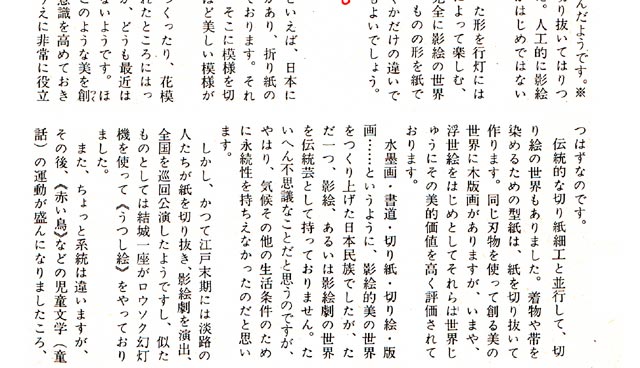 んだようです。※
切り抜いてはりつ
た。人工的に影絵
がはじめではない
た形を行灯には
よって楽しむ、
完全に影絵の世界
ものの形を紙で
くかだけの違いで
もよいでしょう。
といえば、日本に
があり、折り紙の
ております。それ
、そこに模様を切
ほど美しい模様が
つくったり、花模
れたところにはっ
が、どうも最近は
ないようです。ほ
このような美を創
意識を高めておき
うえに非常に役立
つはずなのです。
伝統的な切り紙細工と並行して、切
り絵の世界もありました。着物や帯を
染めるための型紙は、紙を切り抜いて
作ります。同じ刃物を使って創る美の
世界に木版画がありますが、いまや、
浮世絵をはじめとしてそれらは世界じ
ゅうにその美的価値を高く評価されて
おります。
水墨画・書道・切り紙・切り絵・版
画……というように、影絵的美の世界
をつくり上げた日本民族でしたが、た
だ一つ、影絵、あるいは影絵劇の世界
を伝統芸として持っておりません。た
いへん不思議なことだと思うのですが、
やはり、気候その他の生活条件のため
に永続性を持ちえなかったのだと思い
ます。
しかし、かつて江戸末期には淡路の
人たちが紙を切り抜き、影絵劇を演出、
全国を巡回公演したようですし、似た
ものとしては結城一座がロウソク幻灯
機を使って《うつし絵》をやっており
ました。
また、ちょっと系統は違いますが、
その後、《赤い鳥》などの児童文学（童
話）の運動が盛んになりましたころ、